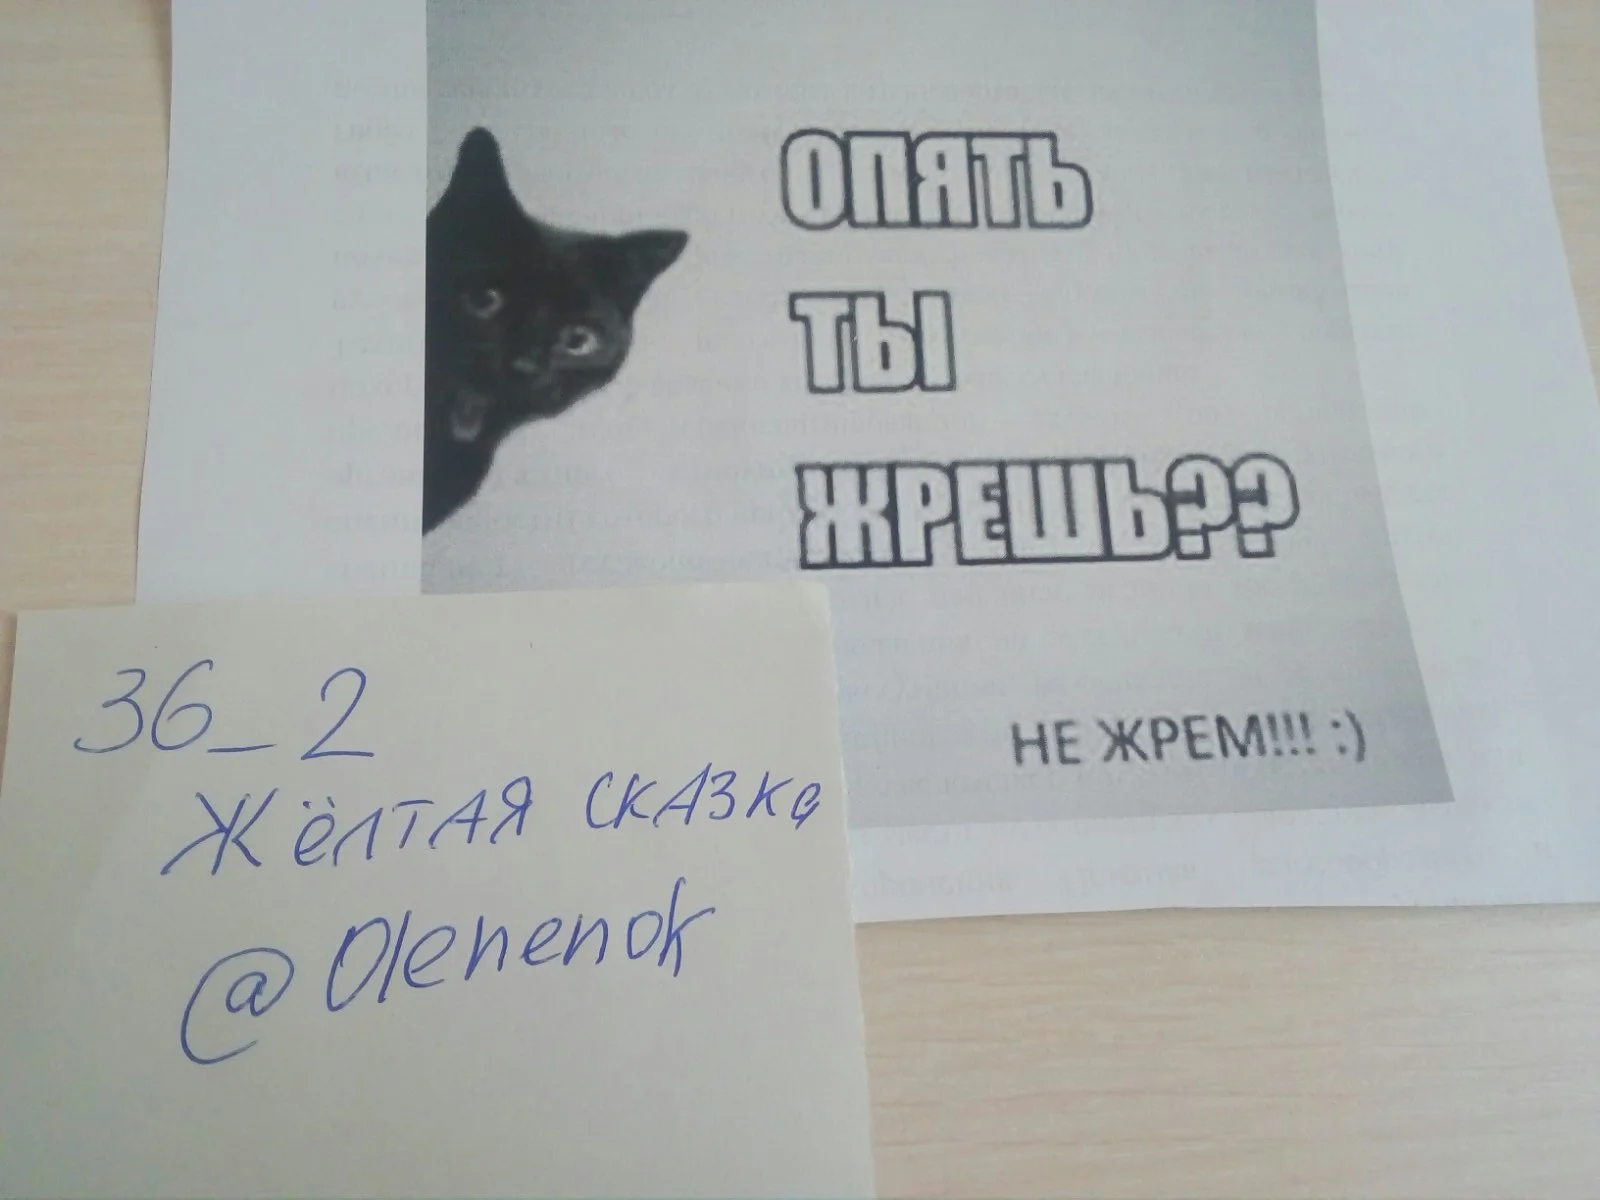 ОПЯТЬ
ТЫ
ЖРЕШЬ??
НЕ ЖРЕМ!!! :)
36_2
Жёлтая сказка
@Olenenok